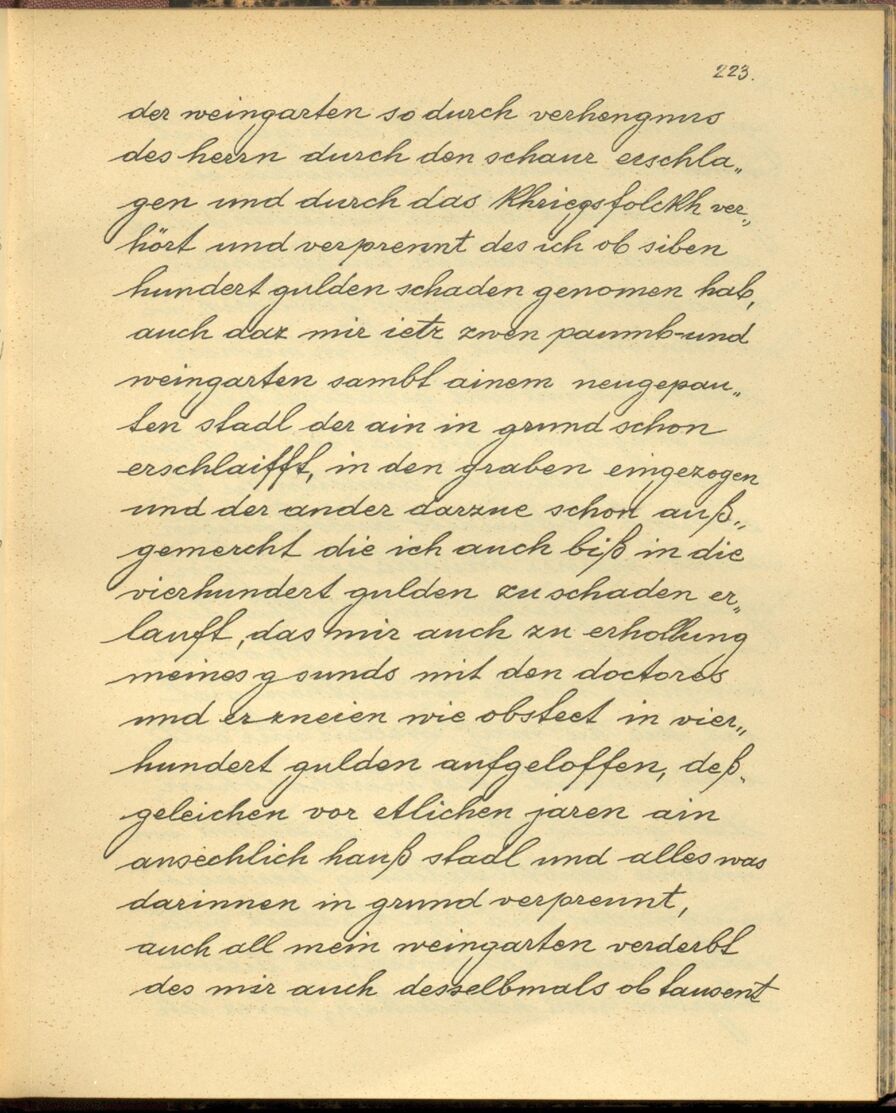 223.
der weingarten so durch verhengnus
des herrn durch den schaur erschla„
gen und durch das Khriegsfolckh ver„
hört und verprennt des ich ob siben
hundert gulden schaden genomen hab,
auch daz mir ietz zwen paumb-und
weingarten sambt ainem neugepau„
ten stadl der ain in grund schon
erschlaifft, in den graben eingezogen
und der ander darzue schon auß„
gemercht die ich auch biß in die
vierhundert gulden zu schaden er„
lauft, das mir auch zu erhollung
meines gsunds mit den doctores
und erzneien wie obsteet in vier„
hundert gulden aufgeloffen, deß„
geleichen vor etlichen jaren ain
ansechlich hauß stadl und alles was
darinnen in grund verprennt,
auch all mein weingarten verderbt
des mir auch desselbmals ob tausent